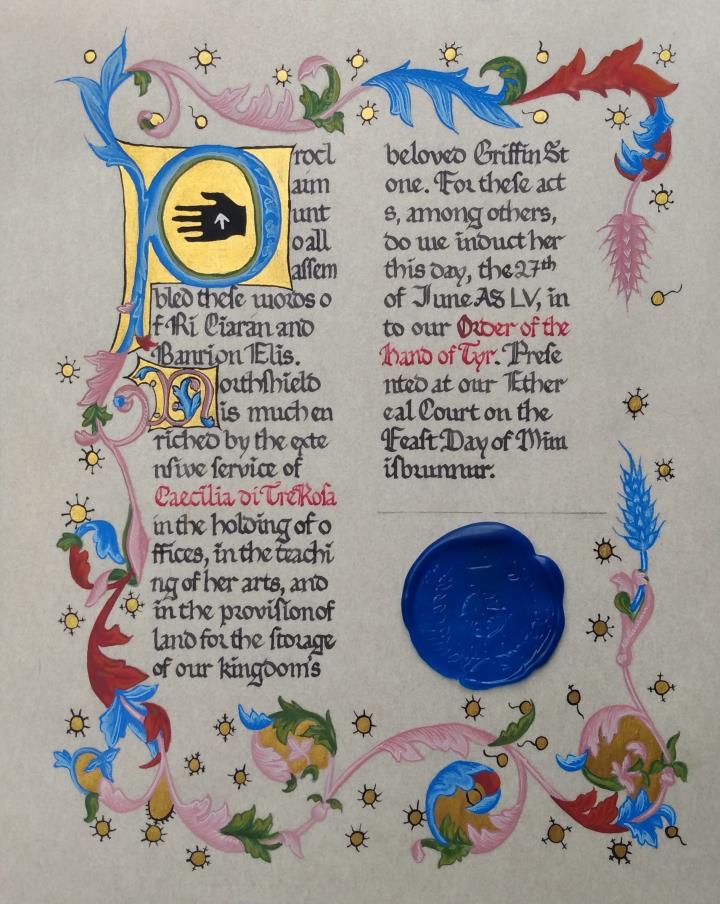 Procl
aim
unt
o all
assem
bled these words o
f Ri Ciaran and
Banrion Elis.
Northshield
is much en
riched by the exte
nsive service of
Caecilia di Tre Rosa
in the holding of o
ffices, in the teachi
ng of her arts, and
in the provision of
land for the storage
of our kingdom's
beloved Griffin St
one. For these act
s, among others,
do we induct her
this day, the 27th
of June AS LV, in
to our Order of the
Hand of Tyr. Prese
nted at our Ether
eal Court on the
Feast Day of Mim
isbrunnur.